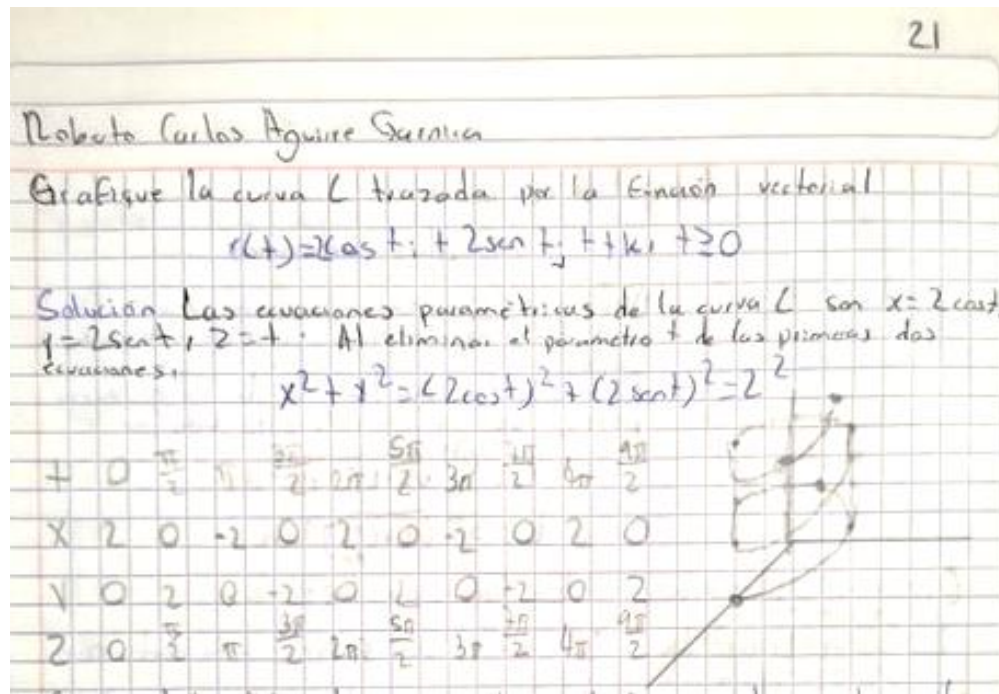 21
Roberto Carlos Aguirre
Grafique la curva C trazada por la función vectorial
r(t)=2cos ti + 2sen tj + tk, t≥0
Solución Las ecuaciones paramétricas de la curva C son x=2cost
y=2sent, z=t. Al eliminar el parametro t de las primeras dos
ecuaciones.
x²+y²=(2cost)²+(2sent)²=2²
t 0 π/2 π 3π/2 2π 5π/2 3π 7π/2 4π 9π/2
X 2 0 -2 0 2 0 -2 0 2 0
Y 0 2 0 -2 0 2 0 -2 0 2
Z 0 π/2 π 3π/2 2π 5π/2 3π 7π/2 4π 9π/2